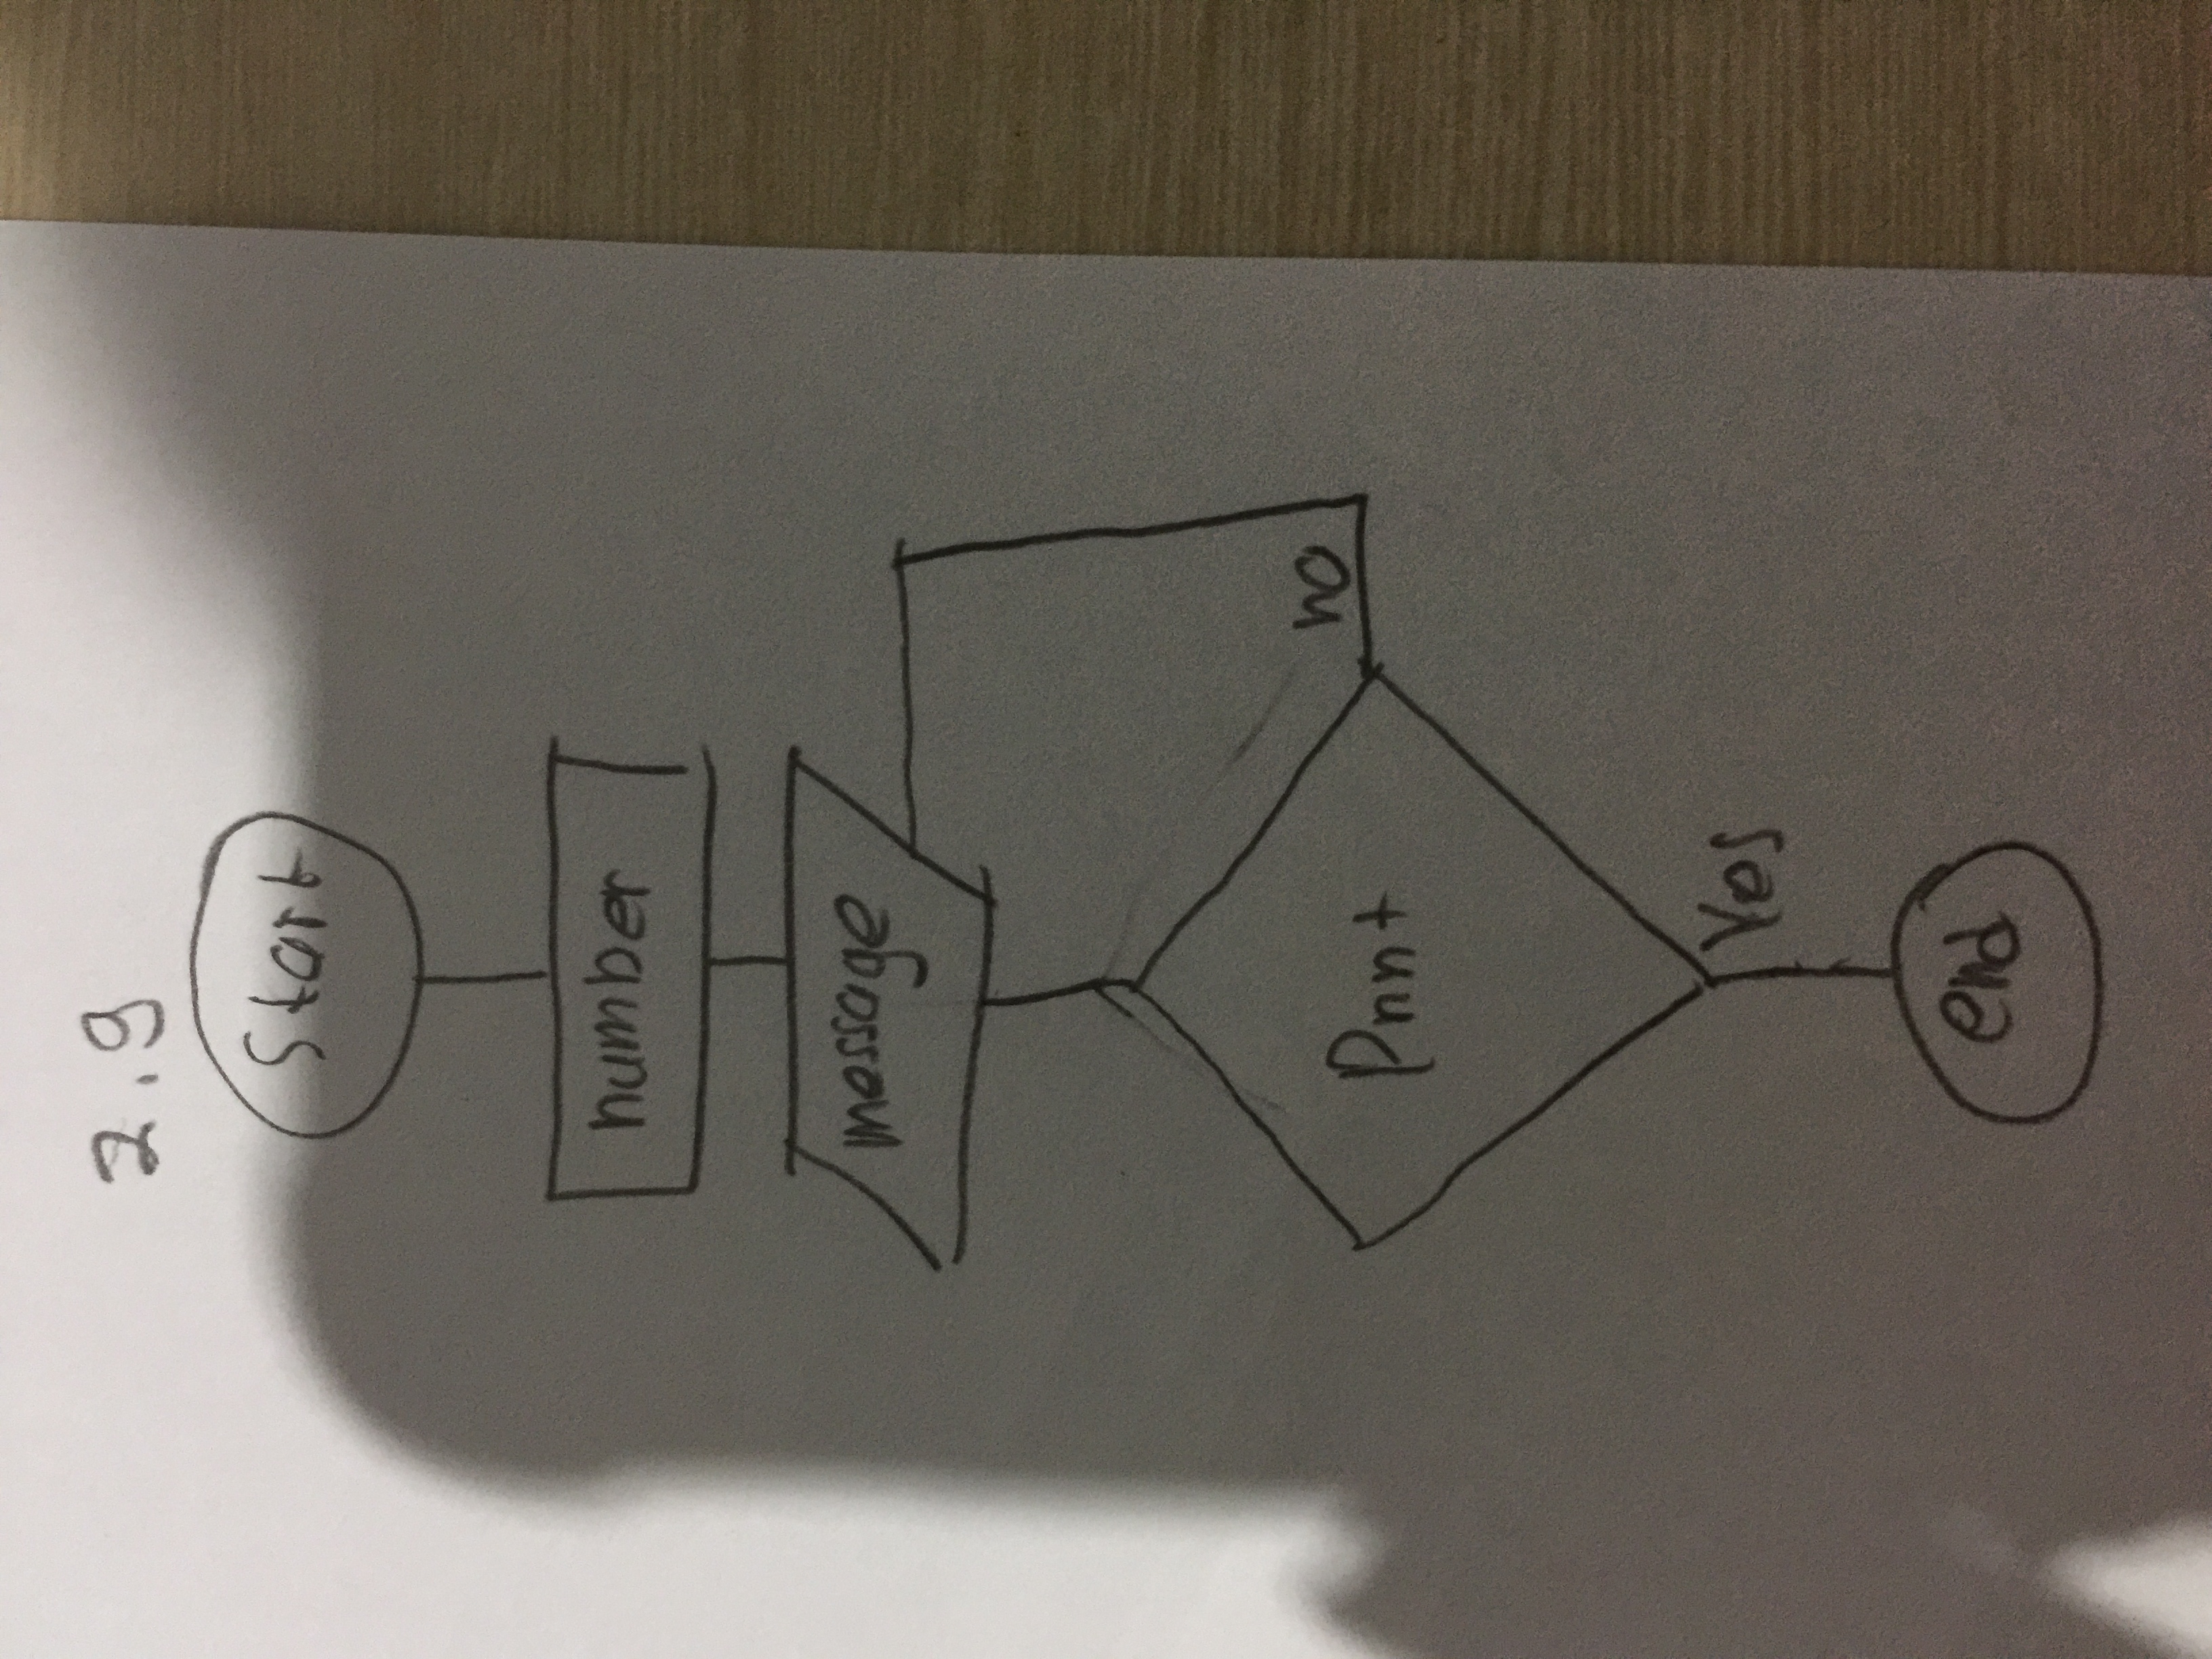 2.9
Start
number
message
Print
no
Yes
end